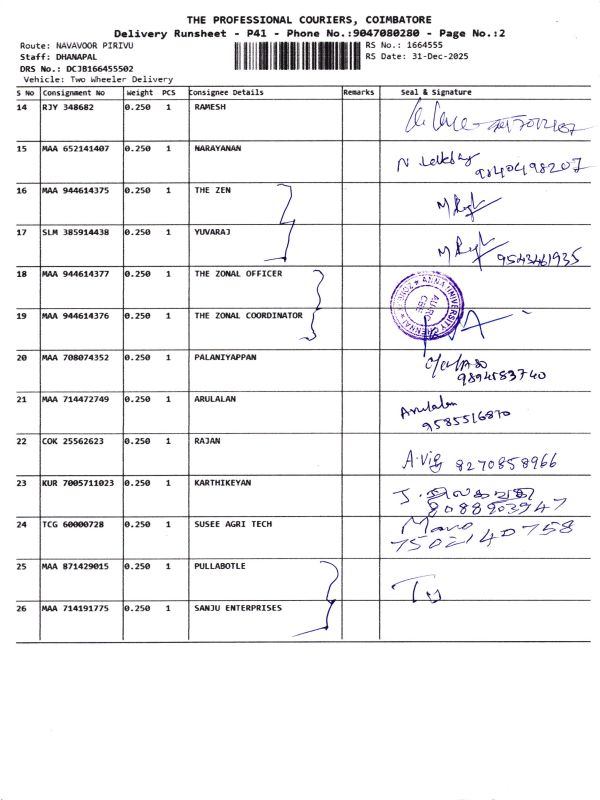 THE PROFESSIONAL COURIERS, COIMBATORE
Delivery Runsheet - P41 - Phone No.:9047080280 - Page No.:2
Route: NAVAVOOR PIRIVU
RS No.: 1664555
Staff: DHANAPAL
RS Date: 31-Dec-2025
DRS No.: DCJB166455502
Vehicle: Two Wheeler Delivery
S No Consignment No Weight PCS Consignee Details Remarks Seal & Signature
14 RJY 348682 0.250 1 RAMESH
15 MAA 652141407 0.250 1 NARAYANAN
9840498207
16 MAA 944614375 0.250 1 THE ZEN
17 SLM 385914438 0.250 1 YUVARAJ
9543461935
18 MAA 944614377 0.250 1 THE ZONAL OFFICER
ANNA UNIVERSITY CHENNAI
19 MAA 944614376 0.250 1 THE ZONAL COORDINATOR
20 MAA 708074352 0.250 1 PALANIYAPPAN
9894583740
21 MAA 714472749 0.250 1 ARULALAN Arulalan
9585516870
22 COK 25562623 0.250 1 RAJAN A.Vig 8270858966
23 KUR 7005711023 0.250 1 KARTHIKEYAN
8088903947
24 TCG 60000728 0.250 1 SUSEE AGRI TECH Mano
7502140758
25 MAA 871429015 0.250 1 PULLABOTLE
26 MAA 714191775 0.250 1 SANJU ENTERPRISES